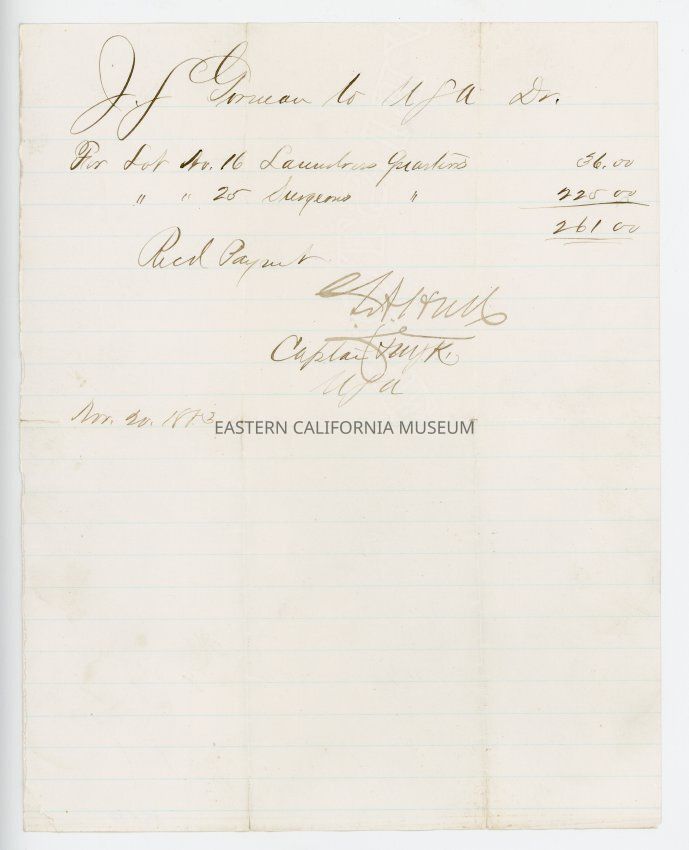 J. J Gorman to U S A Dr.
For Lot No. 16 Laundress Quarters 36.00
" " 25 Surgeons " 225 00
261 00
Recd Paymt
Captain
U S A
Nov. 20. 1883
EASTERN CALIFORNIA MUSEUM